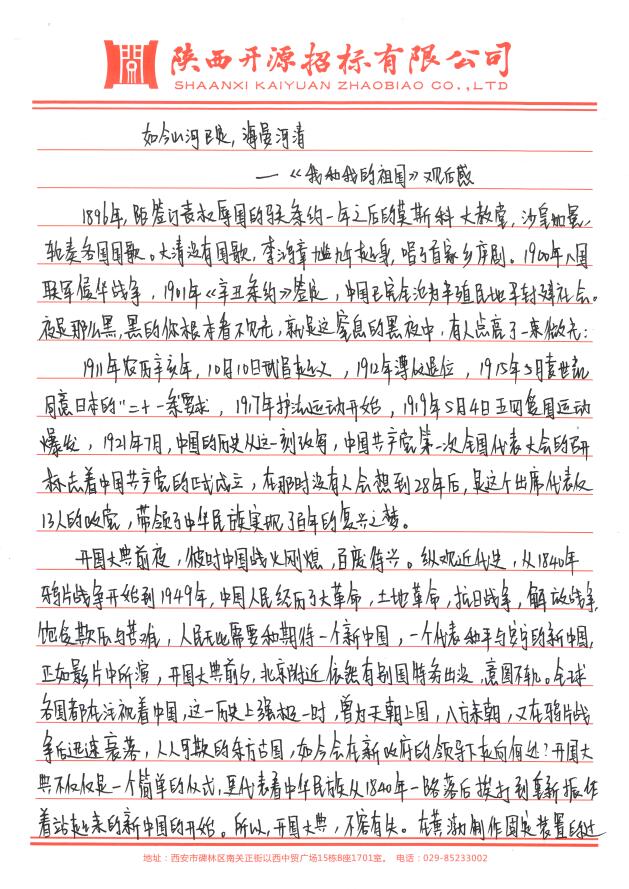 陕西开源招标有限公司
SHAANXI KAIYUAN ZHAOBIAO CO.,LTD
如今山河已是，海晏河清
—《我和我的祖国》观后感
1896年，距签订丧权辱国的马关条约一年之后的莫斯科大教堂，沙皇加冕，
轮奏各国国歌。大清没有国歌，李鸿章尴尬起身，唱了首家乡庐剧。1900年八国
联军侵华战争，1901年《辛丑条约》签定，中国已完全沦为半殖民地半封建社会。
夜是那么黑，黑的你根本看不见光，就是这窒息的黑夜中，有人点亮了一束微光：
1911年农历辛亥年，10月10日武昌起义，1912年溥仪退位，1915年5月袁世凯
同意日本的"二十一条"要求，1917年护法运动开始，1919年5月4日五四爱国运动
爆发，1921年7月，中国的历史从这一刻改写，中国共产党第一次全国代表大会的召开
标志着中国共产党的正式成立，在那时没有人会想到28年后，是这个出席代表仅
13人的政党，带领了中华民族实现了百年的复兴之梦。
开国大典前夜，彼时中国战火刚熄，百废待兴。纵观近代史，从1840年
鸦片战争开始到1949年，中国人民经历了大革命，土地革命，抗日战争，解放战争，
饱受欺压与苦难，人民无比需要和期待一个新中国，一个代表和平与安宁的新中国，
正如影片中所演，开国大典前夕，北京附近依然有别国特务出没，意图不轨。全球
各国都在注视着中国，这一历史上强极一时，曾为天朝上国，八方来朝，又在鸦片战
争后迅速衰落，人人可欺的东方古国，如今会在新政府的领导下走向何处？开国大
典不仅仅是一个简单的仪式，更代表着中华民族从1840年一路落后挨打到重新振作
着站起来的新中国的开始。所以，开国大典，不容有失。在黄渤制作固定装置的过
地址：西安市碑林区南关正街以西中贸广场15栋B座1701室。 电话：029-85233002